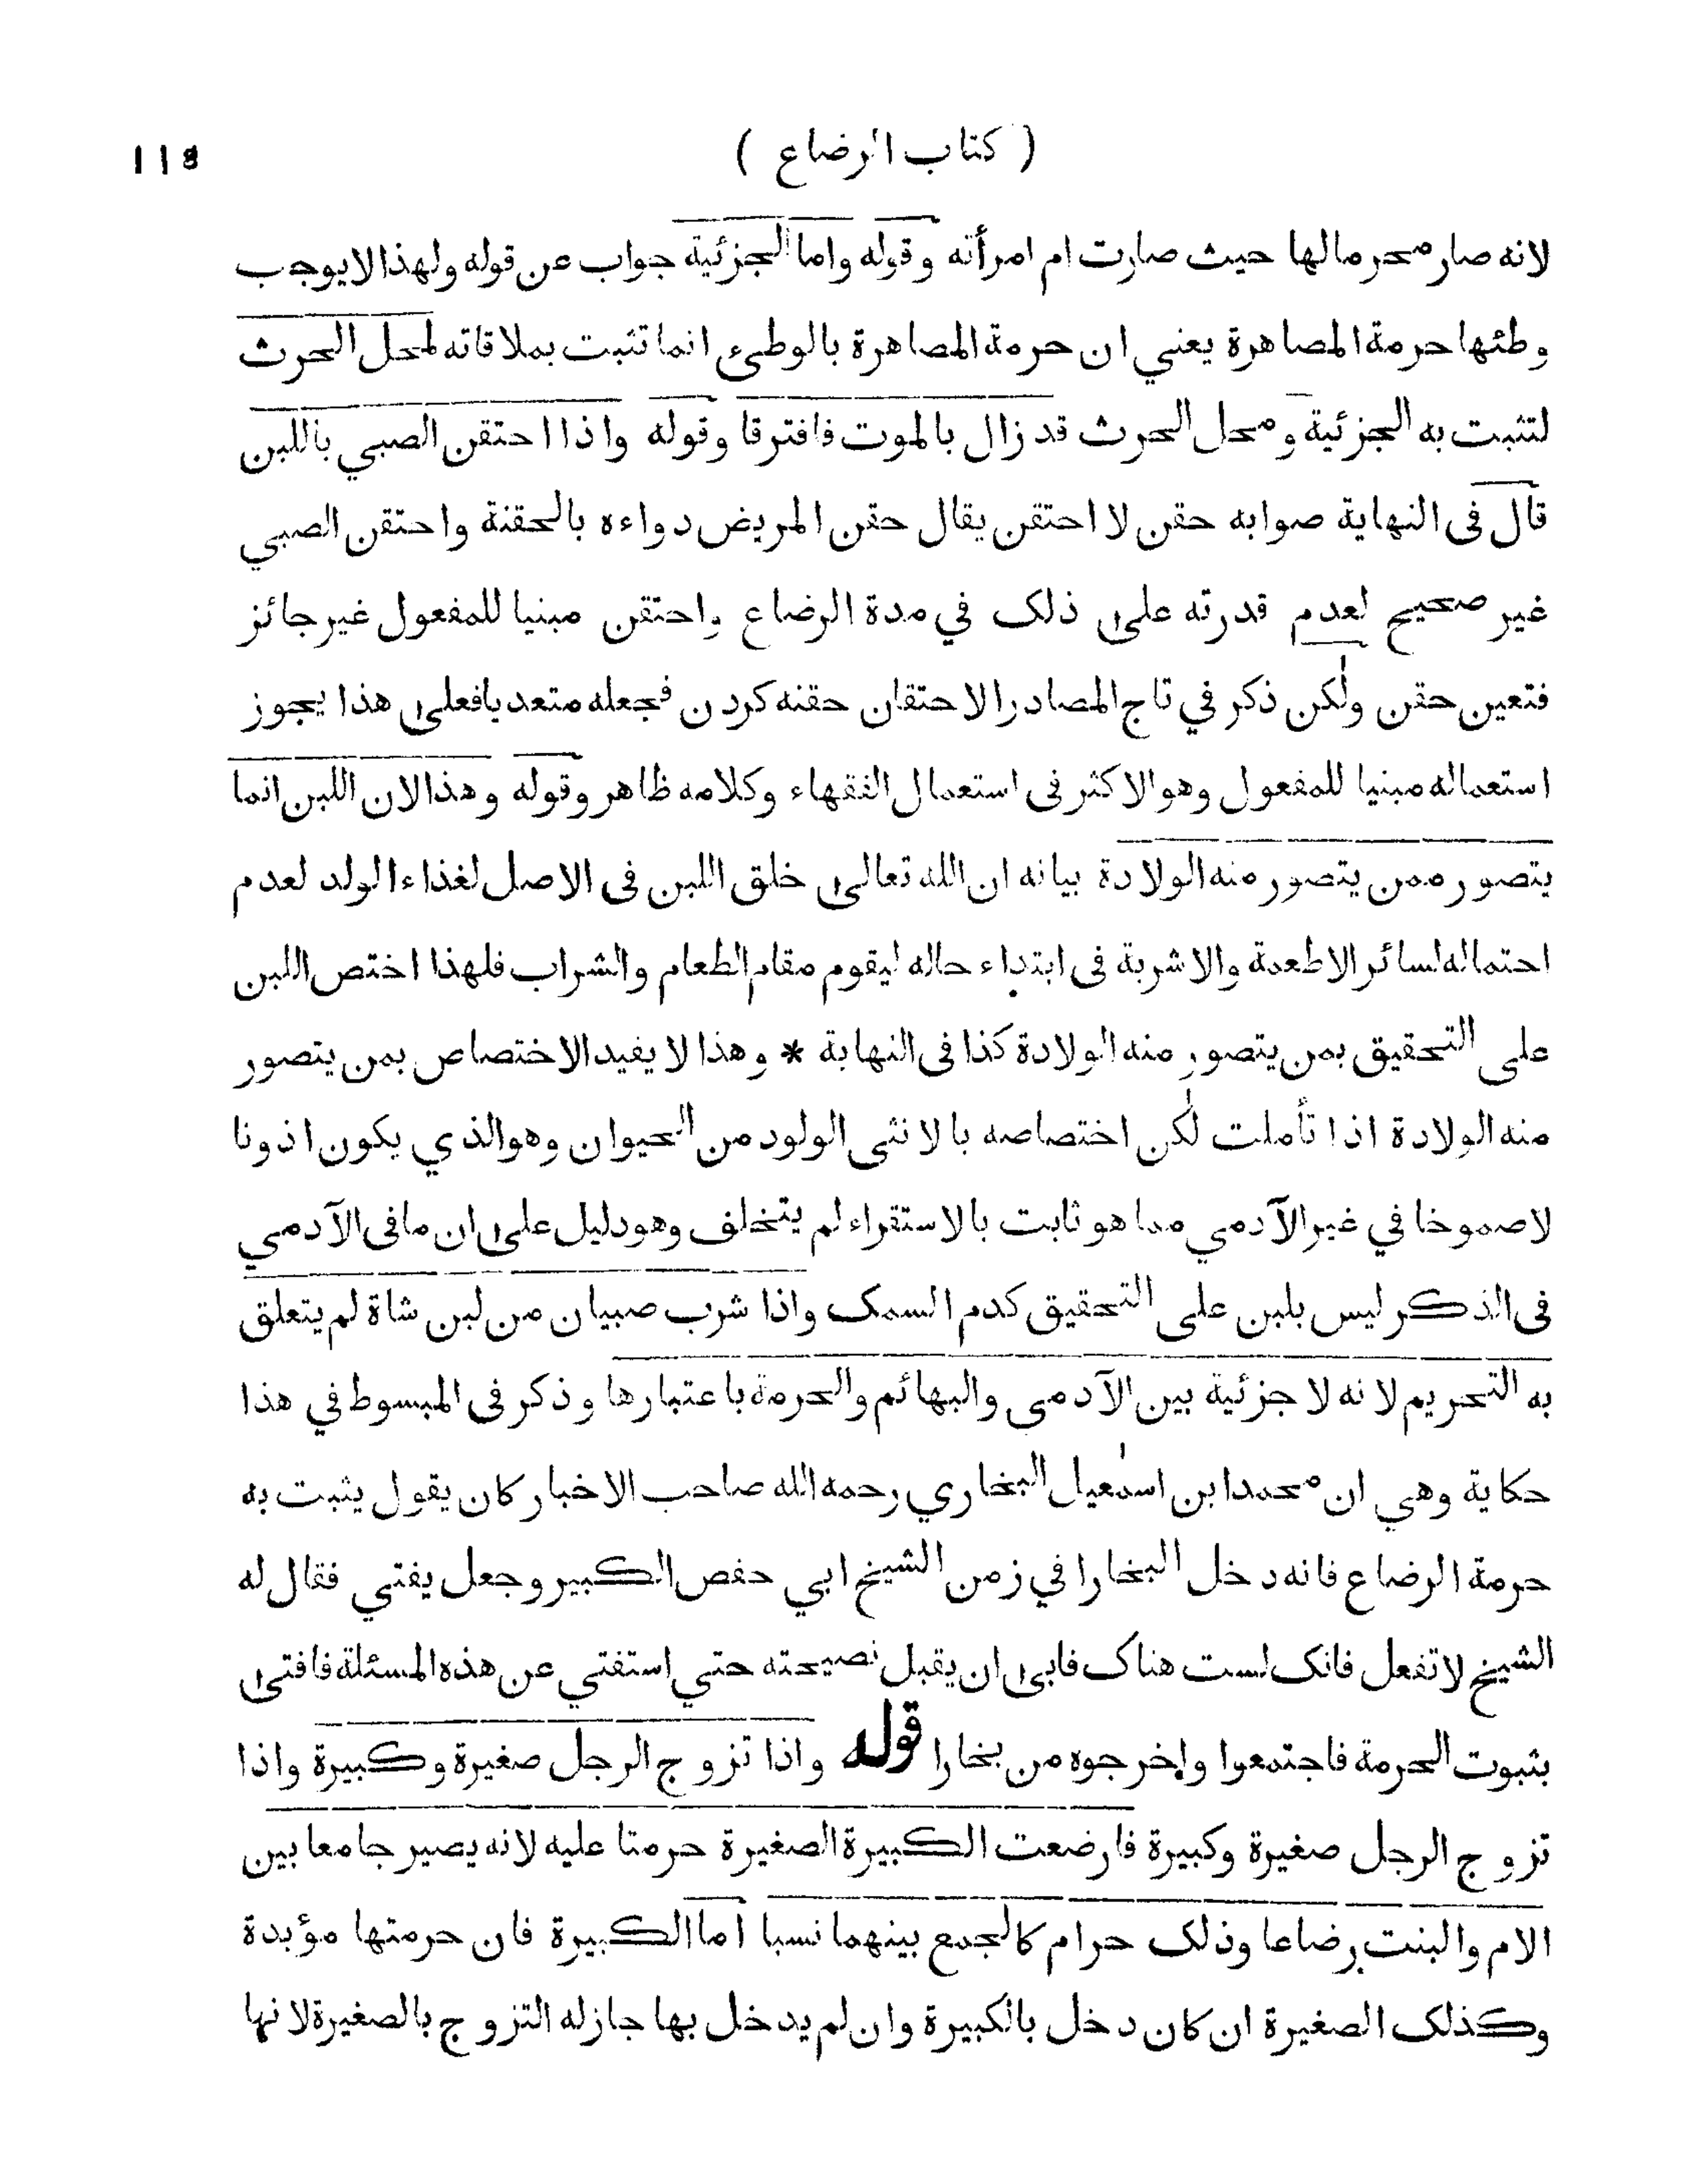 ( كتاب الرضاع )
١١٤
لانه صار محرما لها حيث صارت ام امرأته وقوله واما الجزئية جواب عن قوله ولهذا لا يوجب
وطئها حرمة المصاهرة يعني ان حرمة المصاهرة بالوطىء انما تثبت بملاقاته لمحل الحرث
لتثبت به الجزئية ومحل الحرث قد زال بالموت فافترقا وقوله واذا احتقن الصبي باللبن
قال فى النهاية صوابه حقن لا احتقن يقال حقن المريض دواءه بالحقنة واحتقن الصبي
غير صحيح لعدم قدرته على ذلك في مدة الرضاع واحتقن مبنيا للمفعول غير جائز
فتعين حقن ولكن ذكر في تاج المصادر الاحتقان حقنه كردن فجعله متعديا فعلى هذا يجوز
استعماله مبنيا للمفعول وهو الاكثر فى استعمال الفقهاء وكلامه ظاهر وقوله وهذا لان اللبن انما
يتصور ممن يتصور منه الولادة بيانه ان الله تعالى خلق اللبن فى الاصل لغذاء الولد لعدم
احتماله لسائر الاطعمة والاشربة فى ابتداء حاله ليقوم مقام الطعام والشراب فلهذا اختص اللبن
على التحقيق بمن يتصور منه الولادة كذا فى النهاية * وهذا لا يفيد الاختصاص بمن يتصور
منه الولادة اذا تأملت لكن اختصاصه بالانثى الولود من الحيوان وهو الذي يكون اذونا
لا صموخا في غير الآدمي مما هو ثابت بالاستقراء لم يتخلف وهو دليل على ان ما فى الآدمي
فى الذكر ليس بلبن على التحقيق كدم السمك واذا شرب صبيان من لبن شاة لم يتعلق
به التحريم لانه لا جزئية بين الآدمى والبهائم والحرمة باعتبارها وذكر فى المبسوط في هذا
حكاية وهي ان محمدا بن اسمٰعيل البخاري رحمه الله صاحب الاخبار كان يقول يثبت به
حرمة الرضاع فانه دخل البخارا في زمن الشيخ ابي حفص الكبير وجعل يفتي فقال له
الشيخ لا تفعل فانك لست هناك فابى ان يقبل نصيحته حتي استفتي عن هذه المسئلة فافتى
بثبوت الحرمة فاجتمعوا واخرجوه من بخارا قوله واذا تزوج الرجل صغيرة وكبيرة واذا
تزوج الرجل صغيرة وكبيرة فارضعت الكبيرة الصغيرة حرمتا عليه لانه يصير جامعا بين
الام والبنت رضاعا وذلك حرام كالجمع بينهما نسبا اما الكبيرة فان حرمتها مؤبدة
وكذلك الصغيرة ان كان دخل بالكبيرة وان لم يدخل بها جاز له التزوج بالصغيرة لانها